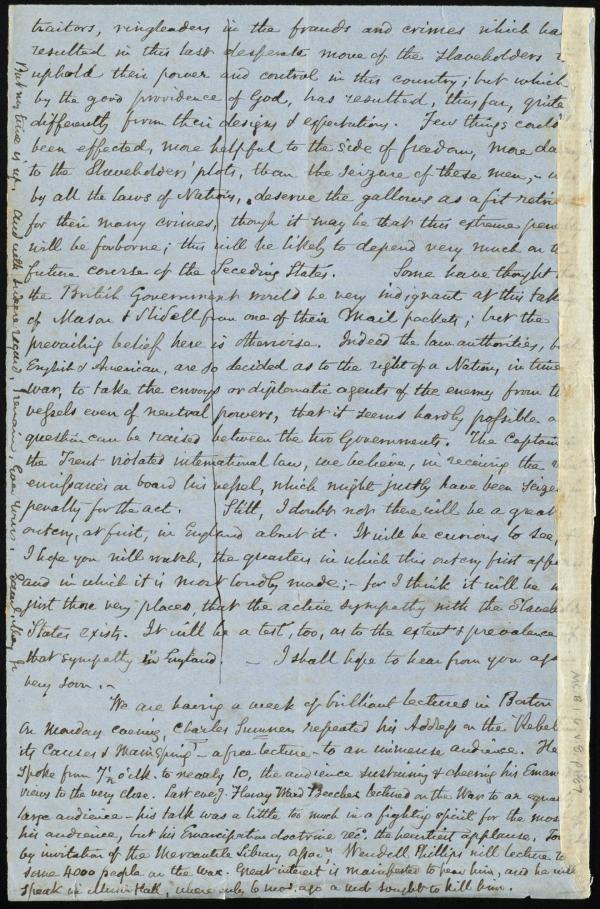 traitors, ringleaders in the frauds and crimes which ha
resulted in this last desperate move of the Slaveholders
uphold their power and control in this country; but which
by the good providence of God, has resulted, thus far, quite
differently from their designs & expectations. Few things could
been effected, more helpful to the side of freedom, more da
to the Slaveholders' plots, than the seizure of these men, -
by all the laws of Nations, deserve the gallows as a fit retri
for their many crimes, though it may be that this extreme pen
will be forborne; this will be likely to depend very much on th
future course of the Seceding States. Some have thought
the British Government would be very indignant at this tak
of Mason & Slidell from one of their Mail packets; but the
prevailing belief here is otherwise. Indeed the law authorities,
English & American, are so decided as to the right of a Nation, in time
war, to take the envoys or diplomatic agents of the enemy from th
vessels even of neutral powers, that it seems hardly possible a
question can be raised between the two Governments. The Captain
the Trent violated international law, we believe, in receiving the
emissaries on board his vessel, which might justly have been seize
penalty for the act. Still, I doubt not there will be a great
outcry, at first, in England about it. It will be curious to see,
I hope you will watch, the quarters in which this outcry first appe
and in which it is most loudly made; - for I think it will be
just those very places, that the active sympathy with the Slaveh
States exists. It will be a test, too, as to the extent & prevalence
that sympathy in England - I shall hope to hear from you aga
very soon. -
We are having a week of brilliant lectures in Boston
On Monday evening, Charles Sumner repeated his Address on the Rebel
its Causes & Mainspring - a free lecture - to an immense audience. He
spoke from 7½ o'clk. to nearly 10, the audience sustaining & cheering his Eman
views to the very close. Last eveg. Henry Ward Beecher lectured on the War to an equal
large audience - his talk was a little too much in a fighting spirit for the most
his audience, but his Emancipation doctrine recd. the heartiest applause. To
by invitation of the Mercantile Library Asson. Wendell Phillips will lecture to
some 4000 people on the war. Great interest is manifested to hear him, and he will
speak in Music Hall, where only 6 mos. ago a mob sought to kill him.
But my time is up. And with sincere regard, I remain, Ever yours, Saml. May Jr